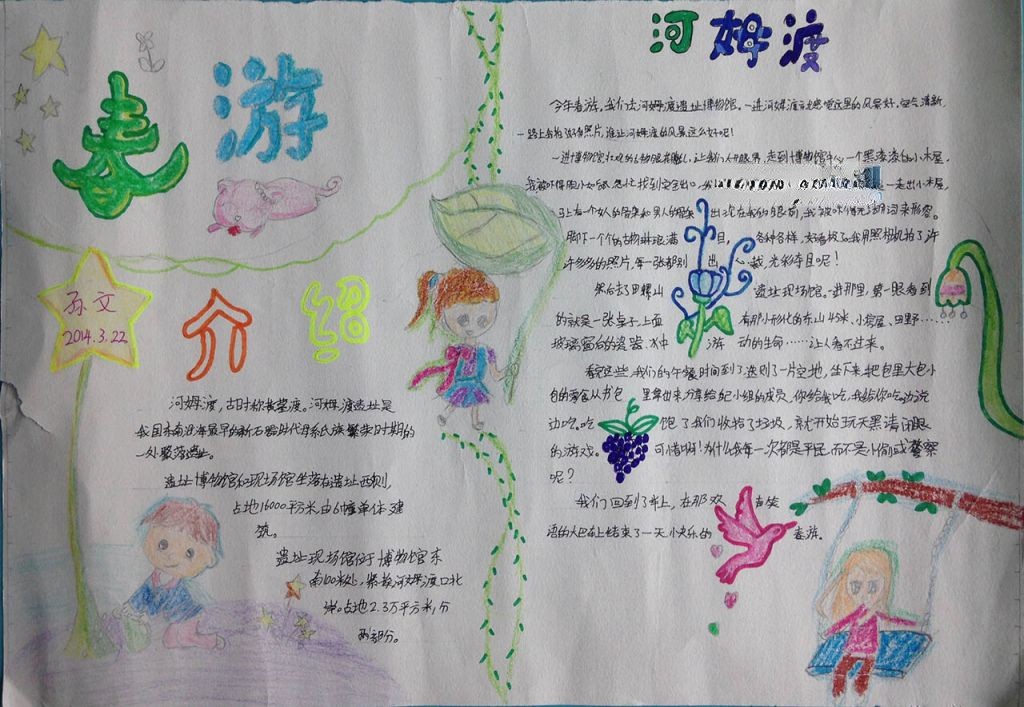 春游
河姆渡
孙文
2014.3.22
介绍
河姆渡,古时称黄墓渡。河姆渡遗址是
我国东南沿海最早的新石器时代母系氏族繁荣时期的
一处聚落遗址。
遗址博物馆和现场馆坐落在遗址西侧,
占地16000平方米,由6幢单体建
筑。
遗址现场馆位于博物馆东
南100米处,紧挨河姆渡口北
岸。占地2.3万平方米,分
两部分。
今年春游,我们去河姆渡遗址博物馆。一进河姆渡就感觉这里的风景好,空气清新,
一路上我拍没有照片,谁让河姆渡的风景这么好呢!
一进博物馆,让我们大开眼界,走到博物馆中心一个黑漆漆的小木屋,
我被吓得胆小如鼠,急忙找到安全出口,一走出小木屋,
马上有一个女人的骨架和男人的骨架出现在我的眼前,我被吓得无法用词来形容。
脚下一个个的古物琳琅满目,各种各样,好看极了。我用照相机拍了许
许多多的照片,每一张都别出心裁,光彩夺目呢!
然后去了田螺山遗址现场馆。一进那里,第一眼看到
的就是一张桌子,上面有那小形化的东山45米、小房屋、田野……
玻璃窗台的瓷器、水中游动的生命……让人看不过来。
看完这些,我们的午餐时间到了,选则了一片空地,坐下来,把包里大包小
包的零食从书包里拿出来分享给纪小组的成员,你给我吃,我给你吃,边说
边吃。吃饱了我们收拾了垃圾,就开始玩天黑请闭眼
的游戏。可惜啊!为什么我每一次都是平民,而不是小偷或警察
呢?
我们回到了车上,在那欢声笑
语的大巴车上结束了一天小快乐的春游。